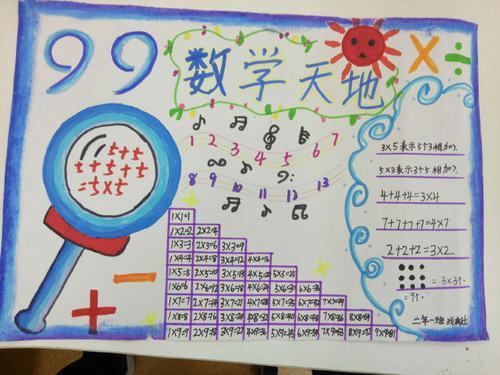 99
数学天地
× ÷
1 2 3 4 5 6 7
8 9 10 11 12 13
5+5
5+5+5
=5×5
+ -
3×5表示5个3相加.
5×3表示3个5相加.
4+4+4=3×4
7+7+7+7=4×7
2+2+2=3×2
=3×3个
=9个.
1×1=1
1×2=2 2×2=4
1×3=3 2×3=6 3×3=9
1×4=4 2×4=8 3×4=12 4×4=16
1×5=5 2×5=10 3×5=15 4×5=20 5×5=25
1×6=6 2×6=12 3×6=18 4×6=24 5×6=30 6×6=36
1×7=7 2×7=14 3×7=21 4×7=28 5×7=35 6×7=42 7×7=49
1×8=8 2×8=16 3×8=24 4×8=32 5×8=40 6×8=48 7×8=56 8×8=64
1×9=9 2×9=18 3×9=27 4×9=36 5×9=45 6×9=54 7×9=63 8×9=72 9×9=81
二年一班